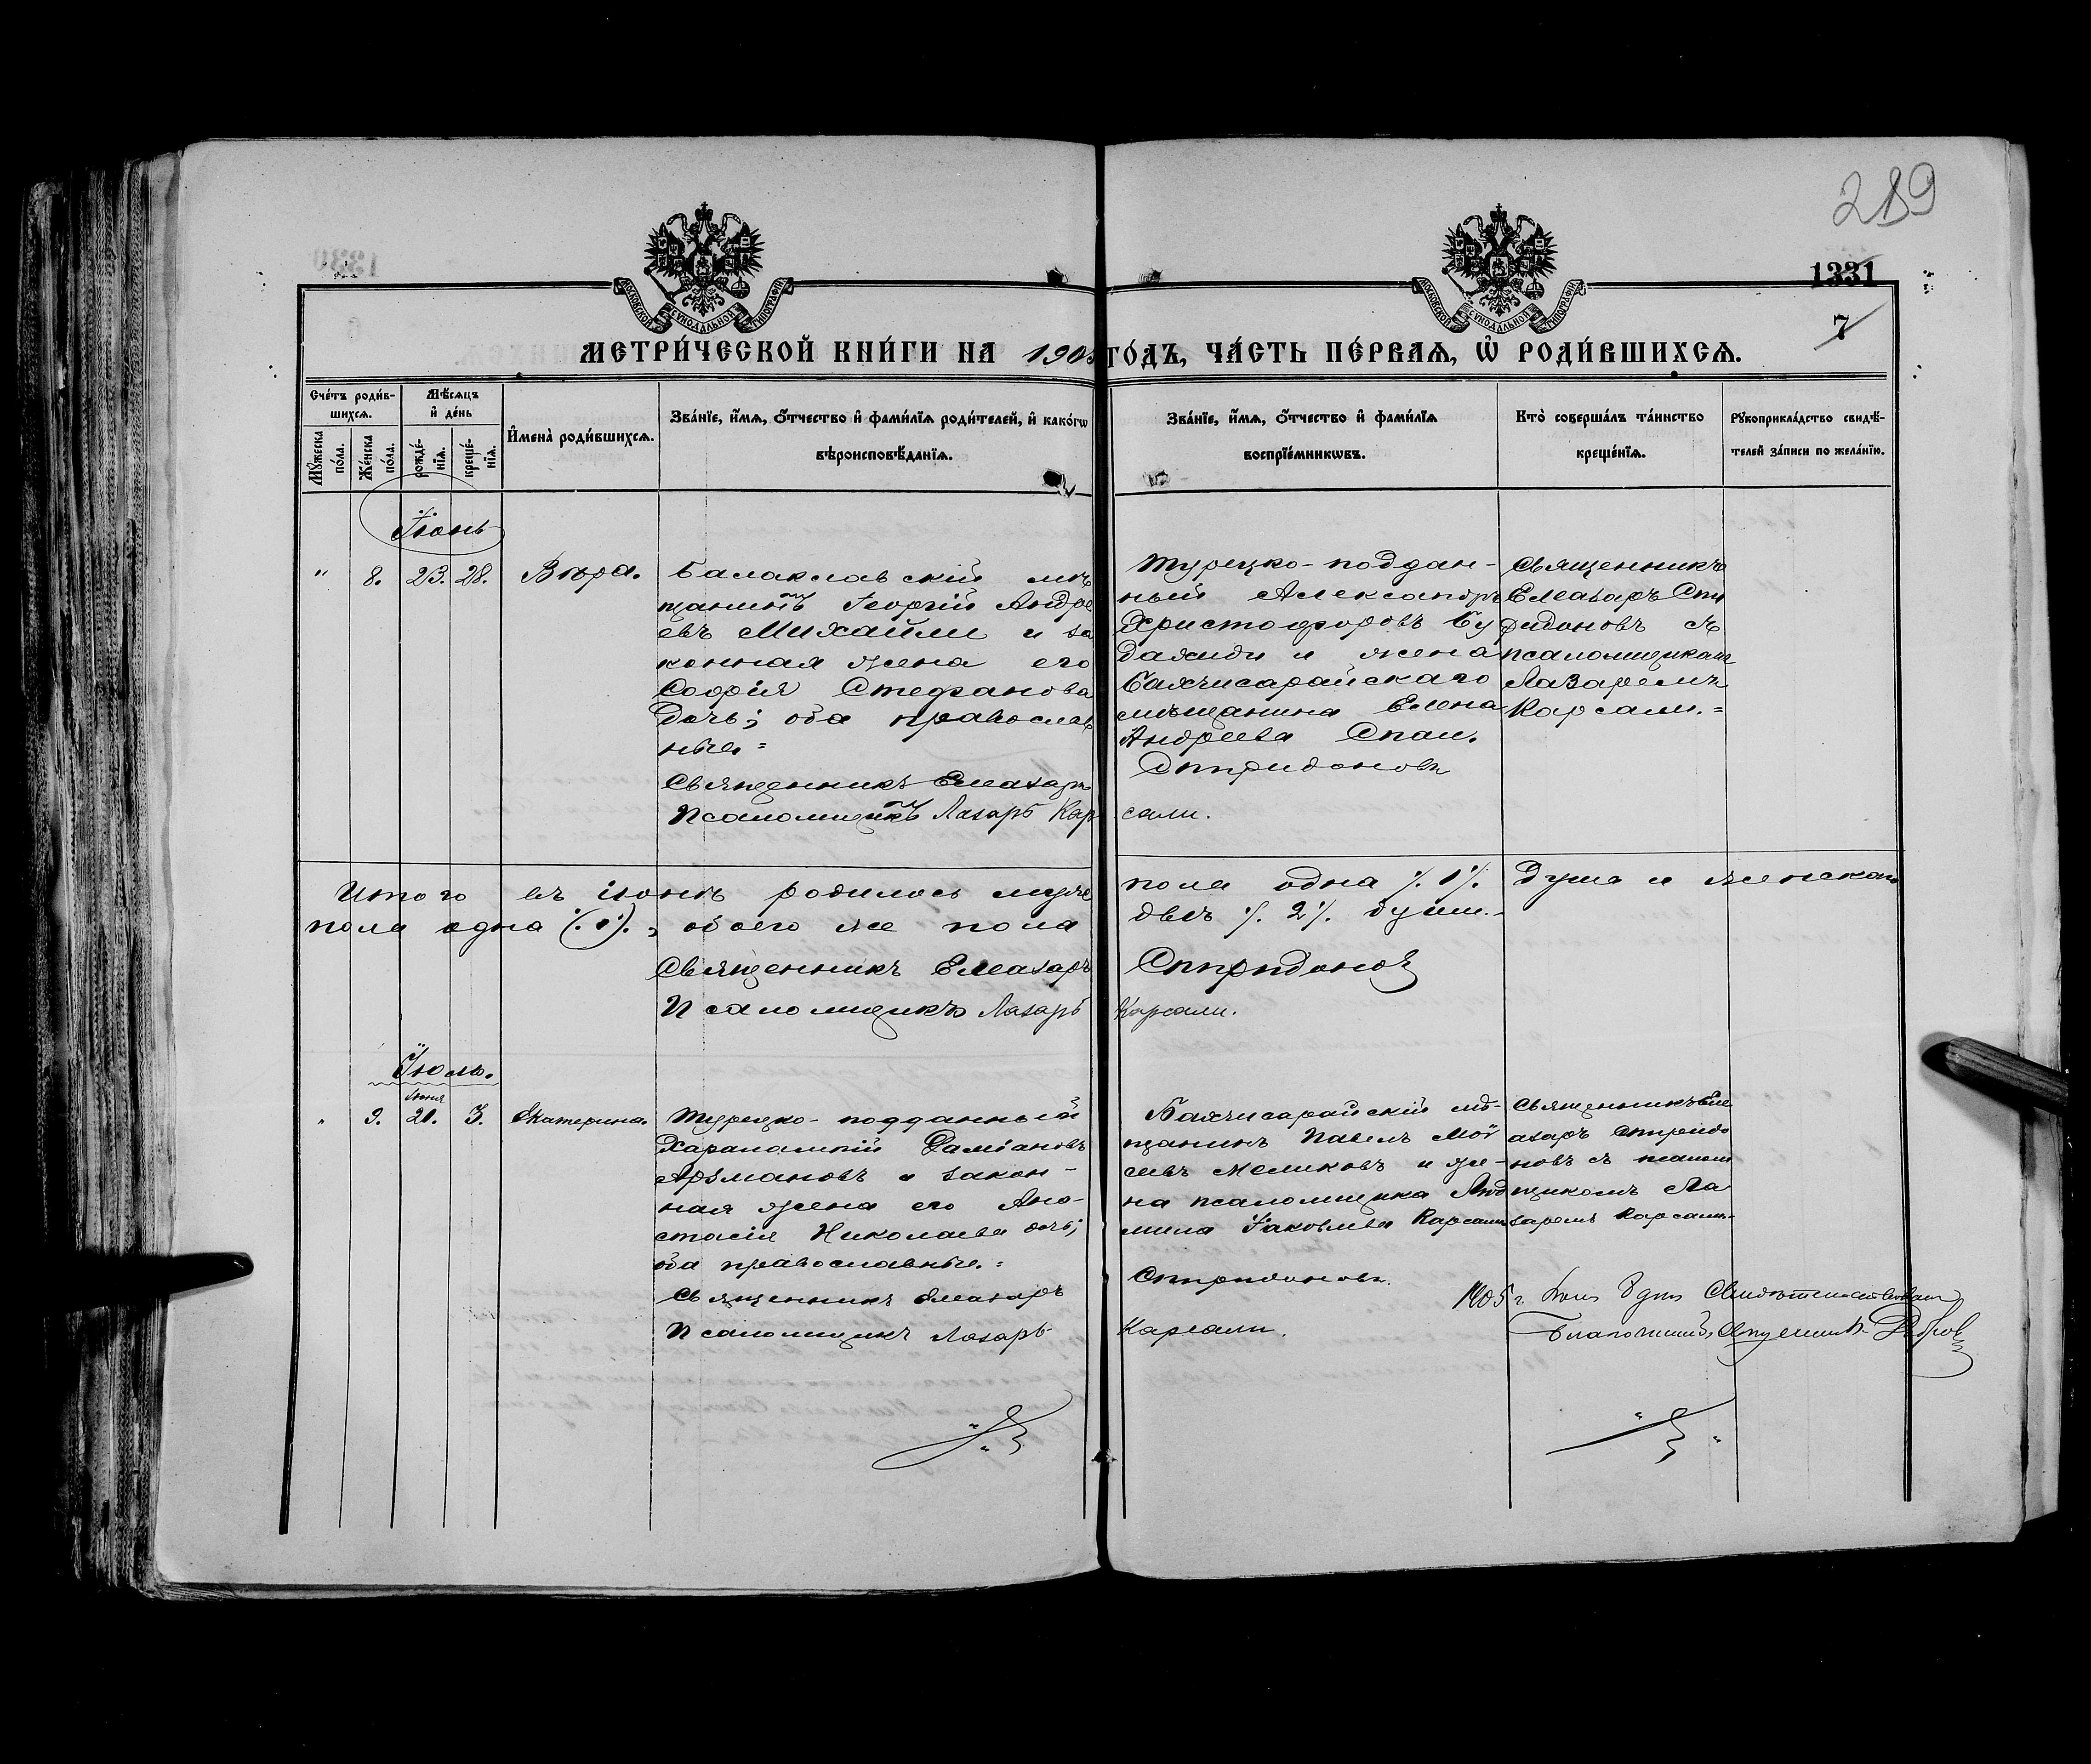 289
1331
7
МОСКОВСКОЙ СУНОДАЛЬНОЙ ТИПОГРАФІИ
МОСКОВСКОЙ СУНОДАЛЬНОЙ ТИПОГРАФІИ
МЕТРИ́ЧЕСКОЙ КНИ́ГИ НА 1905 ГО́ДЪ, ЧА́СТЬ ПЕ́РВАѦ, Ѽ РОДИ́ВШИХСѦ.
Сче́тъ роди́в-
шихсѧ.
Мѣ́сѧцъ
и҆ де́нь
Мꙋ́жеска по́ла.
Же́нска по́ла.
рожде́-нїѧ.
креще́-нїѧ.
И҆мена̀ роди́вшихсѧ.
Зва́нїе, и҆́мѧ, ѻ҆́тчество и҆ фами́лїѧ роди́телей, и҆ како́гѡ
вѣроисповѣ́данїѧ.
Зва́нїе, и҆́мѧ, ѻ҆́тчество и҆ фами́лїѧ
воспрїе́мникѡвъ.
Кто̀ соверша́лъ та́инство
креще́нїѧ.
Рꙋкоприкла́дство свидѣ́-
телей за́писи по жела́нїю.
Іюнь
" 8. 23. 28. Вѣра.
Балаклавскій мѣ
щанинъ Георгій Андре
евъ Михайли и за
конная жена его
Софія Стефанова
дочь; оба православ
ные.=
Священникъ Елеазаръ
Псаломщикъ Лазарь Кар
Турецко-поддан-
ный Александръ
Христофоровъ Бу
дажиди и жена
Бахчисарайскаго
мѣщанина Елена
Андреева Спаи.
Спиридоновъ
сали.
Священникъ
Елеазаръ Спи
ридоновъ съ
псаломщикомъ
Лазаремъ
Карсали.=
Итого въ іюнѣ родилось муже
пола одна ⁒ 1 ⁒ душа и женскаго
пола одна (.1)., обоего же пола
двѣ ⁒ 2 ⁒ души.-
Священникъ Елеазаръ Спиридоновъ
Псаломщикъ Лазарь Карсали.
Іюль.
Іюня
" 9. 20. 3. Екатерина.
Турецко-подданный
Харалампій Даміановъ
Арзмановъ и закон-
ная жена его Ана-
стасія Николаева дочь;
оба православные.=
Священникъ Елеазаръ
Псаломщикъ Лазарь
Бахчисарайскій мѣ-
щанинъ Павелъ Мои
сеевъ Меликовъ и же-
на псаломщика Люд
мила Іаковлева Карсали
Спиридоновъ.
Карсали.
Священникъ Еле
азаръ Спиридо
новъ съ псалом
щикомъ Ла
заремъ Карсали.-
1905 г. Іюля 8 дня Свидѣтельствовалъ
Благочинный, Священникъ